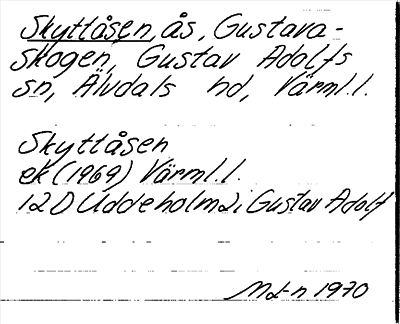 Skyttåsen, ås, Gustava-
skogen, Gustav Adolfs
sn, Älvdals hd, Värml.l.
Skyttåsen
ek (1969) Värml.l.
12D Uddeholm 2i Gustav Adolf
1970